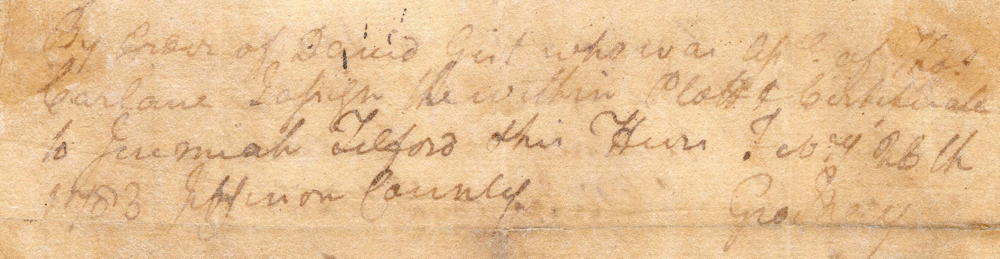 By Order of David Gist who was Ass. of Thos.
Carlane I assign the within Platt & Certificate
to Jeremiah Tilford this Heirs Febry 26th
1783 Jefferson County
Geo